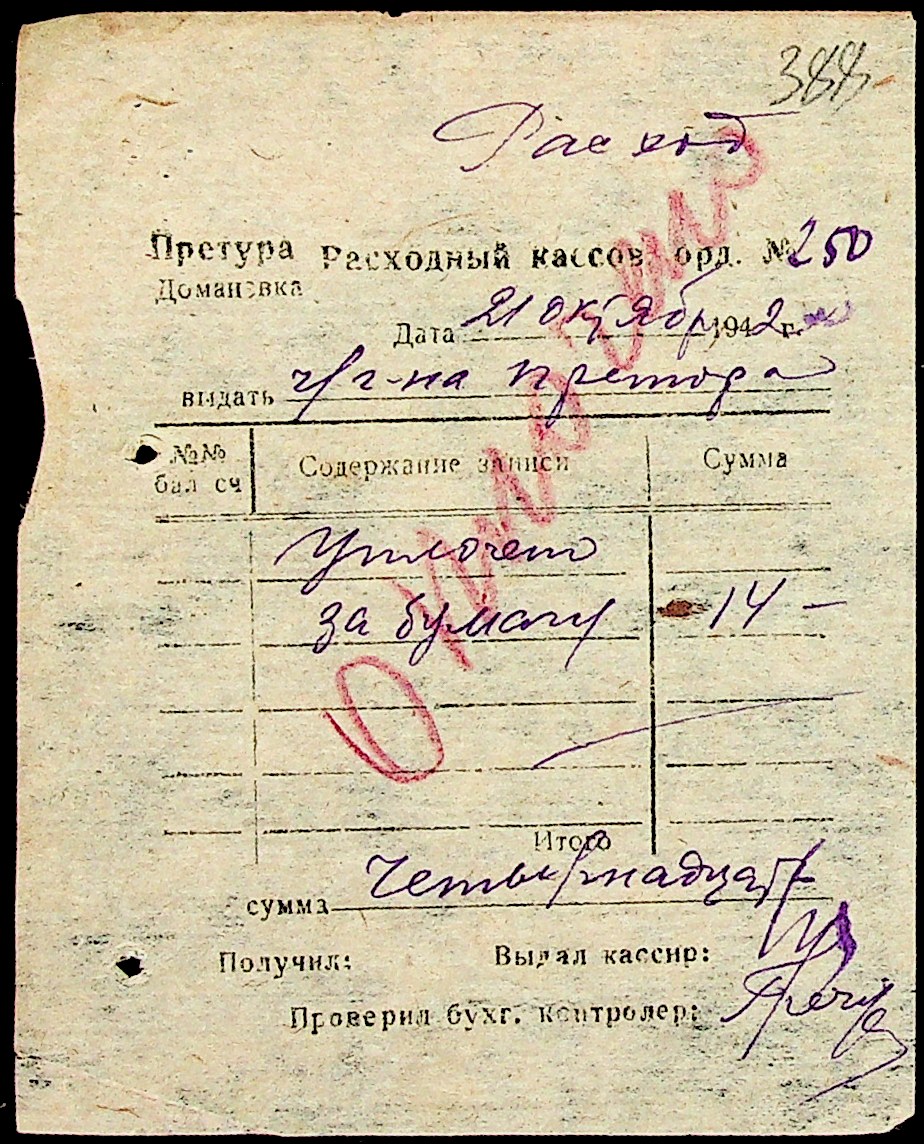 388
Расход
Претура Расходный кассов. орд. № 250
Домановка
Дата 21 октябр 1942 г.
выдать ч/г-на претора
№№ бал сч Содержание записи Сумма
Уплочено
за бумагу 14 —
Итого
сумма Четырнадцать
Получил: Выдал кассир:
Проверил бухг. контролер: